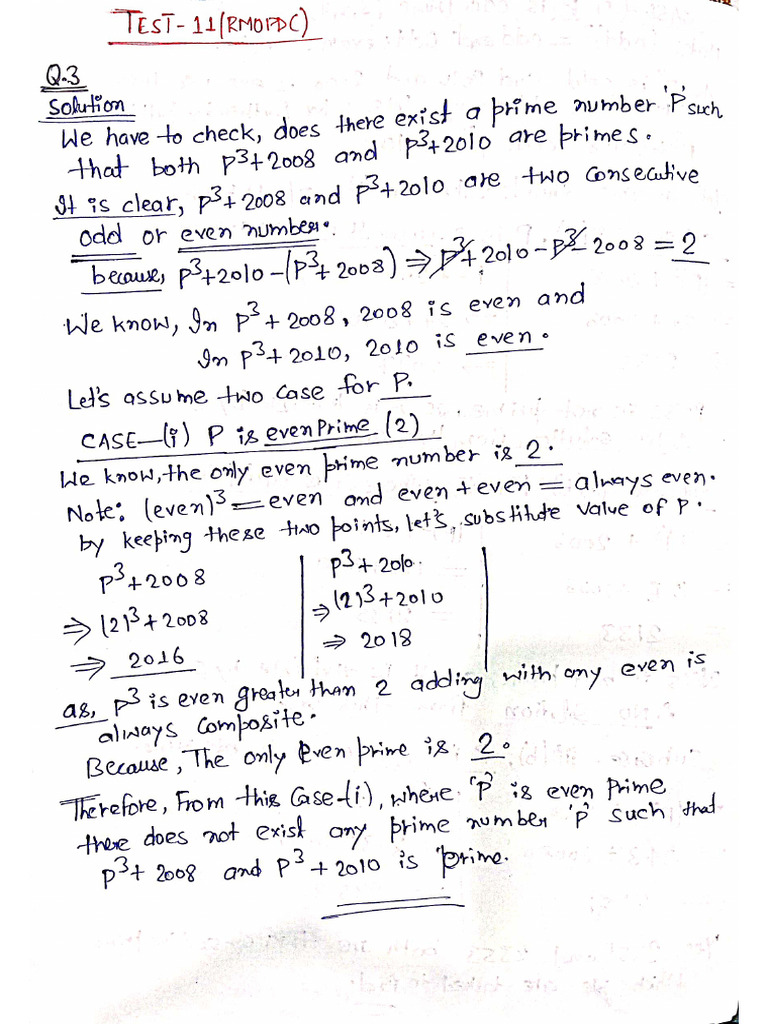 TEST-11(RMOPDC)
Q.3
Solution
We have to check, does there exist a prime number 'P' such
that both P³+2008 and P³+2010 are primes.
It is clear, P³+2008 and P³+2010 are two consecutive
odd or even number.
because, P³+2010-(P³+2008) ⇒ P³+2010-P³-2008 = 2
We know, In P³+2008, 2008 is even and
In P³+2010, 2010 is even.
Let's assume two case for P.
CASE-(i) P is even Prime (2)
We know, the only even prime number is 2.
Note: (even)³ = even and even + even = always even.
by keeping these two points, let's, substitute value of P.
P³+2008
⇒ (2)³+2008
⇒ 2016
P³+2010.
⇒ (2)³+2010
⇒ 2018
as, P³ is even greater than 2 adding with any even is
always composite.
Because, The only Even prime is 2.
Therefore, From this Case-(i), where 'P' is even Prime
there does not exist any prime number 'P' such that
P³+2008 and P³+2010 is prime.